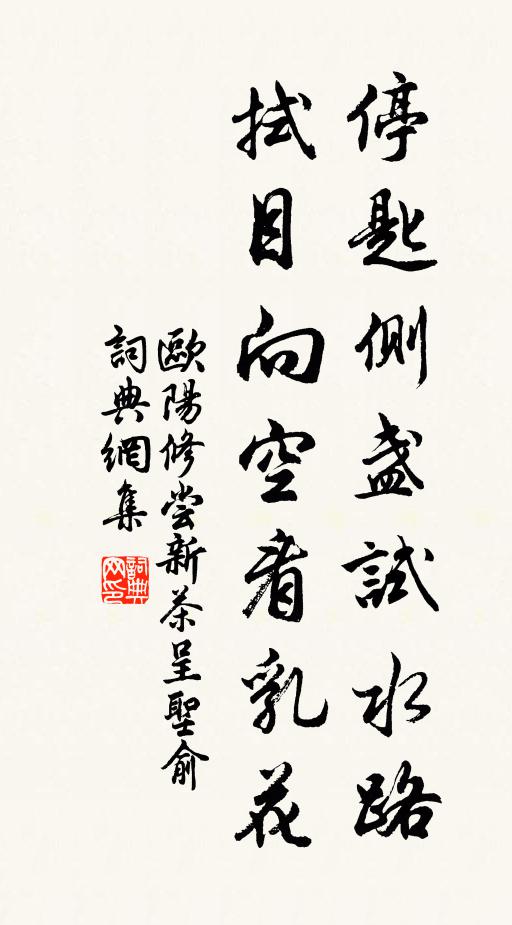 停匙側盞試水路
拭目向空看乳花
歐陽修嘗新茶呈聖俞
詞典網集
詞典网印